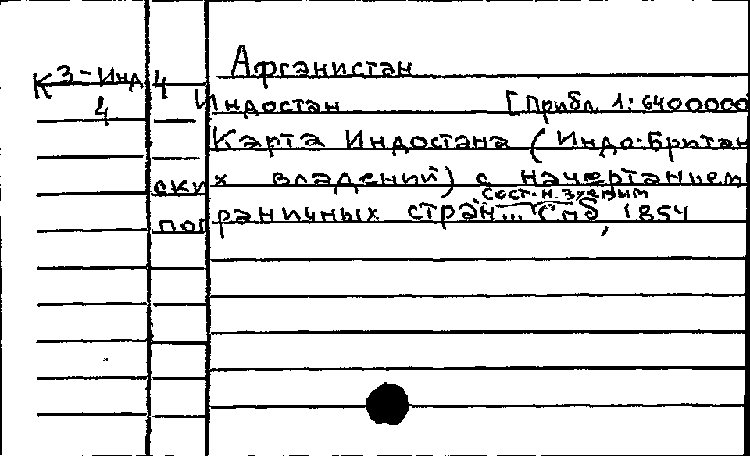 Афганистан
К 3-Инд 4
4
Индостан [Прибл. 1:6400000
Карта Индостана (Индо-Британ
ских владений) с начертанием
Сост. Н. Зуевым
пограничных стран... Спб, 1854